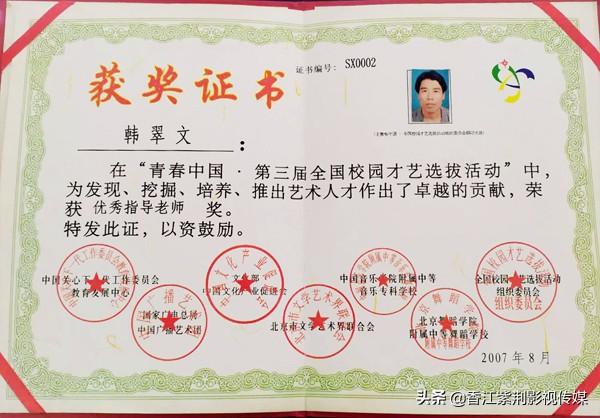 获奖证书
证书编号： SX0002
韩翠文：
在“青春中国·第三届全国校园才艺选拔活动”中，
为发现、挖掘、培养、推出艺术人才作出了卓越的贡献，荣
获 优秀指导老师 奖。
特发此证，以资鼓励。
中国关心下一代工作委员会
教育发展中心
文化部
中国文化产业促进会
中国音乐学院附属中等
音乐专科学校
全国校园才艺选拔活动
组织委员会
国家广电总局
中国广播艺术团
北京市文学艺术界联合会
北京舞蹈学院
附属中等舞蹈学校
2007年8月
头条 @香江紫荆影视传媒